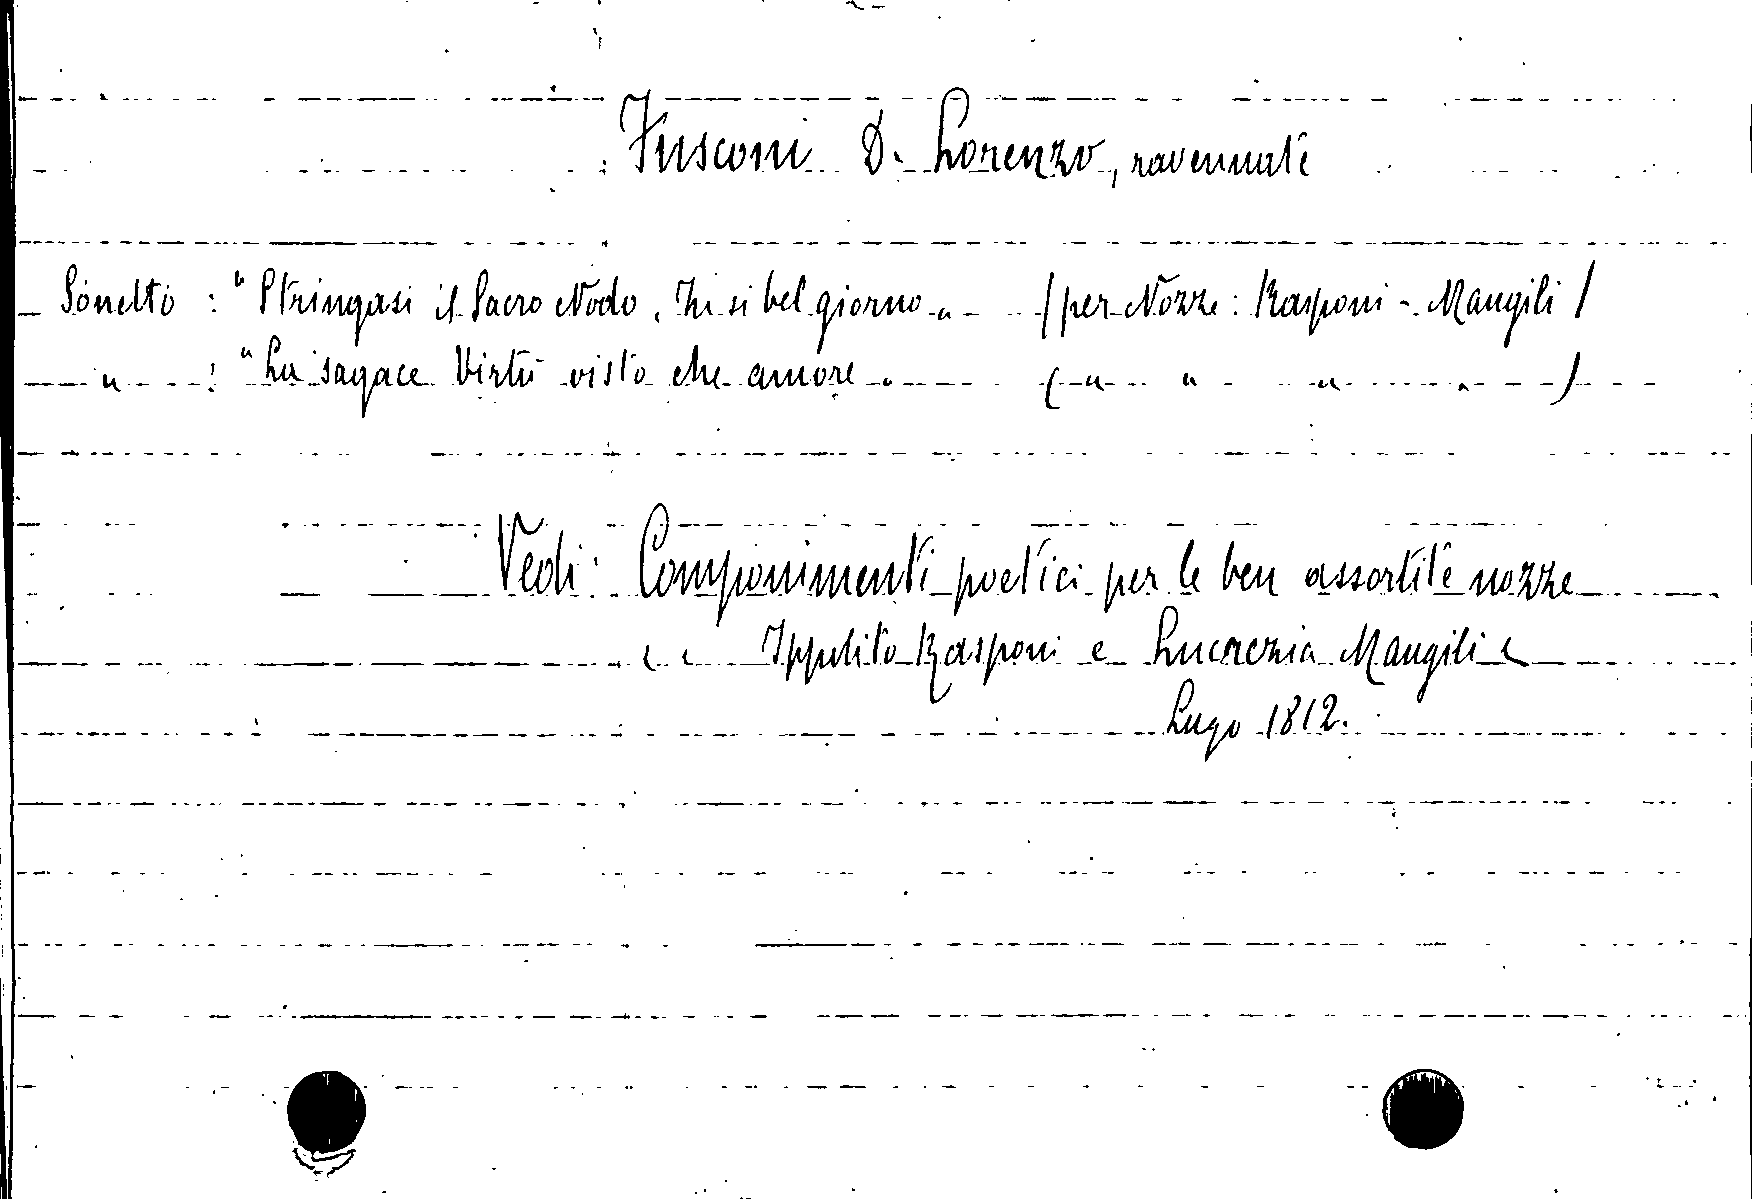 Fusconi D. Lorenzo, ravennate
Sonetto : "Stringasi il Sacro Nodo. In sì bel giorno" (per Nozze: Rasponi - Mangili)
" : "La sagace Virtù visto che amore" ( " " " " )
Vedi: Componimenti poetici per le ben assortite nozze
Ippolito Rasponi e Lucrezia Mangili
Lugo 1812.